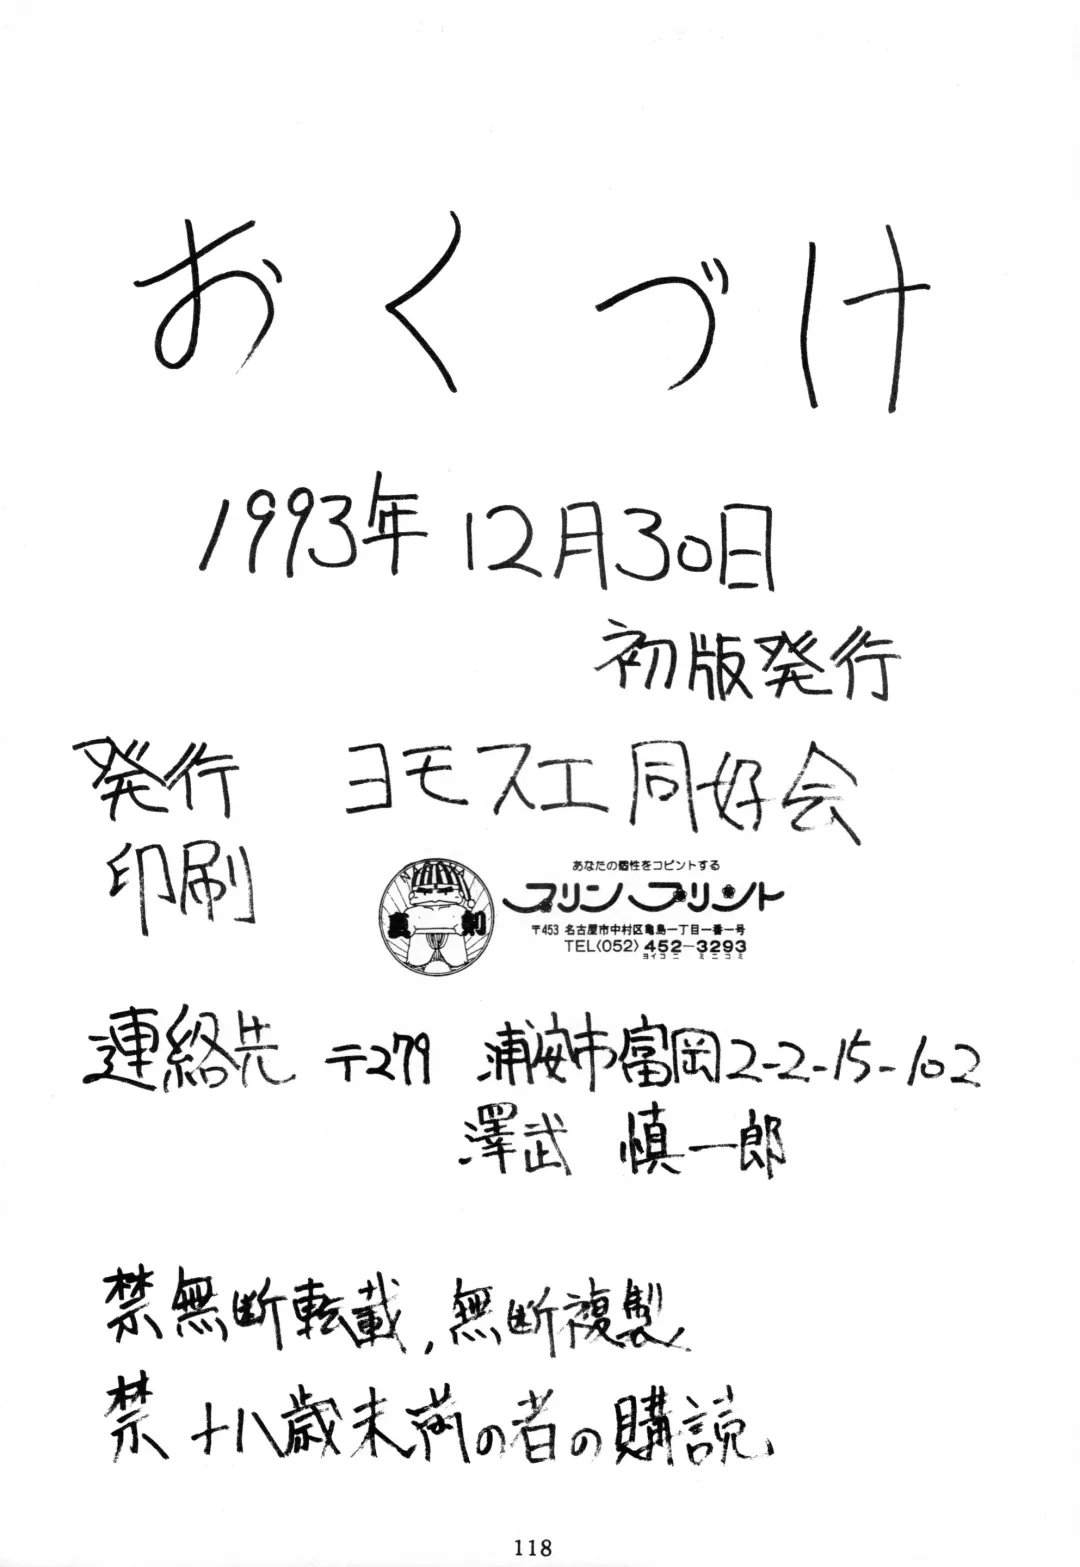 おくづけ
1993年12月30日
初版発行
発行 ヨモスエ同好会
印刷
あなたの個性をコピントする
プリンプリント
〒453 名古屋市中村区亀島一丁目一番一号
TEL〈052〉452-3293
ヨイコニ ミニコミ
裏 剣
連絡先 〒279 浦安市富岡2-2-15-102
澤武 慎一郎
禁無断転載,無断複製
禁十八歳未満の者の購読
118